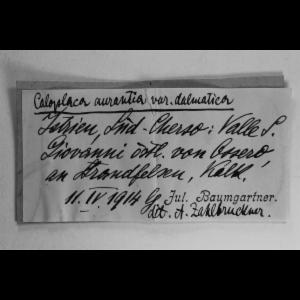 Caloplaca aurantia var. dalmatica
Istrien, Süd-Cherso: Valle S.
Giovanni östl. von Ossero
an Strandfelsen, Kalk,
11. IV. 1914 Jul. Baumgartner.
det. A. Zahlbruckner.